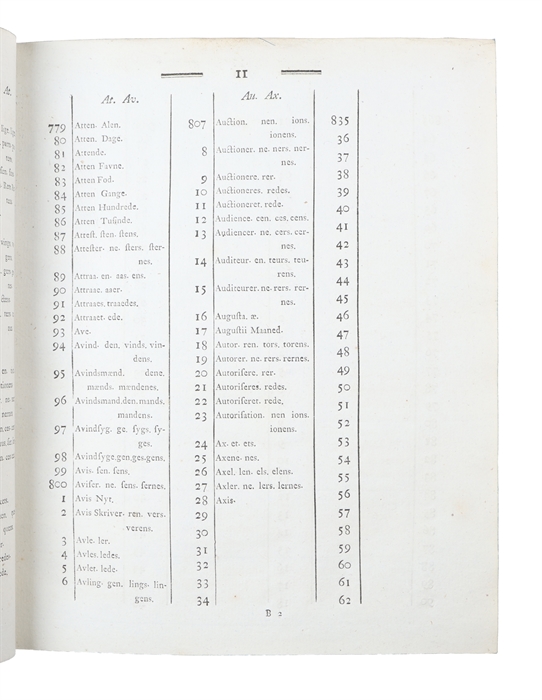 II
At. Av.
779 Atten. Alen.
80 Atten. Dage.
81 Attende.
82 Atten Favne.
83 Atten Fod.
84 Atten Gange.
85 Atten Hundrede.
86 Atten Tuſinde.
87 Atteſt. ſten. ſtens.
88 Atteſter. ne. ſters. ſter-
nes.
89 Attraa. en. aas. ens.
90 Attraae. aaer.
91 Attraaes. traaedes.
92 Attraaet. ede.
93 Ave.
94 Avind. den. vinds. vin-
dens.
95 Avindsmænd. dene.
mænds. mændenes.
96 Avindsmand. den. mands.
mandens.
97 Avindſyg. ge. ſygs. ſy-
ges.
98 Avindſyge. gen. ges. gens.
99 Avis. ſen. ſens.
800 Aviſer. ne. ſens. ſernes.
1 Avis Nyt.
2 Avis Skriver. ren. vers.
verens.
3 Avle. ler.
4 Avles. ledes.
5 Avlet. lede.
6 Avling. gen. lings. lin-
gens.
Au. Ax.
807 Auction. nen. ions.
ionens.
8 Auctioner. ne. ners. ner-
nes.
9 Auctionere. rer.
10 Auctioneres. redes.
11 Auctioneret. rede.
12 Audience. cen. ces. cens.
13 Audiencer. ne. cers. cer-
nes.
14 Auditeur. en. teurs. teu-
rens.
15 Auditeurer. ne. rers. rer-
nes.
16 Auguſta. æ.
17 Auguſtii Maaned.
18 Autor. ren. tors. torens.
19 Autorer. ne. rers. rernes.
20 Autoriſere. rer.
21 Autoriſeres. redes.
22 Autoriſeret. rede.
23 Autoriſation. nen ions.
ionens.
24 Ax. et. ets.
25 Axene. nes.
26 Axel. len. els. elens.
27 Axler. ne. lers. lernes.
28 Axis.
29
30
31
32
33
34
835
36
37
38
39
40
41
42
43
44
45
46
47
48
49
50
51
52
53
54
55
56
57
58
59
60
61
62
B 2